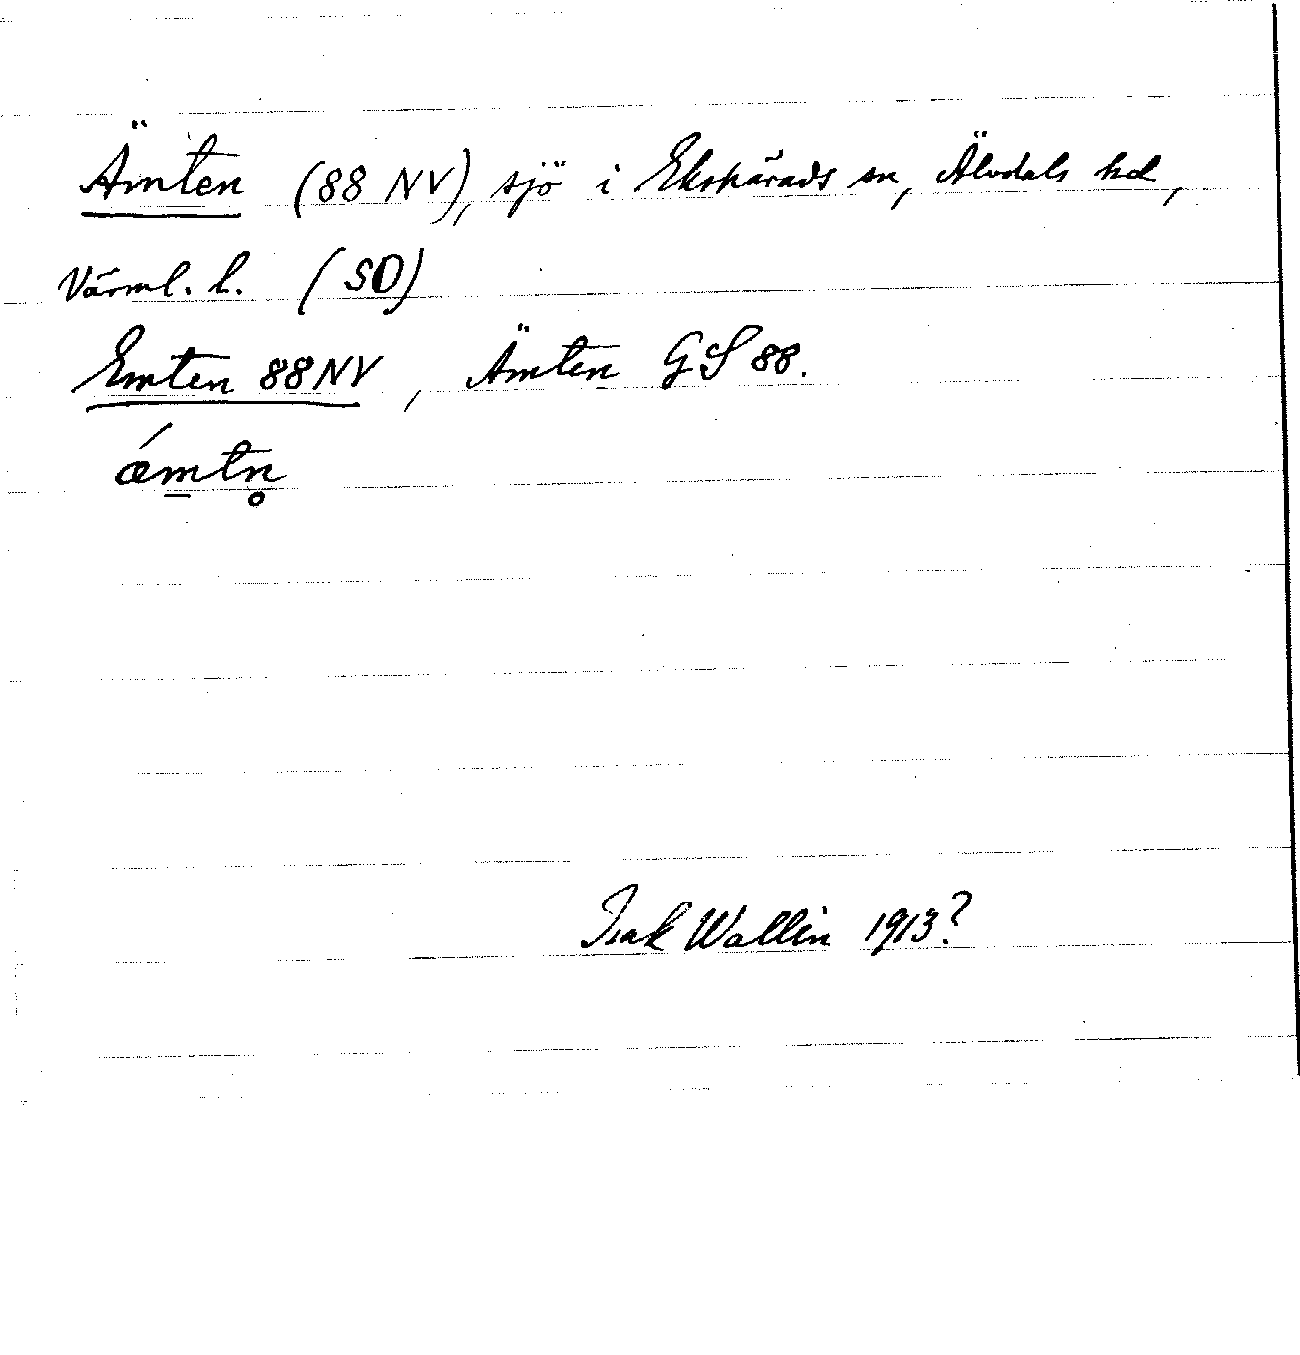 Ämten (88 NV), sjö i Ekshärads sn, Älvdals hd,
Värml. l. (SO)
Emten 88NV, Ämten GS 88.
ǽm̲tn̥
Isak Wallin 1913?